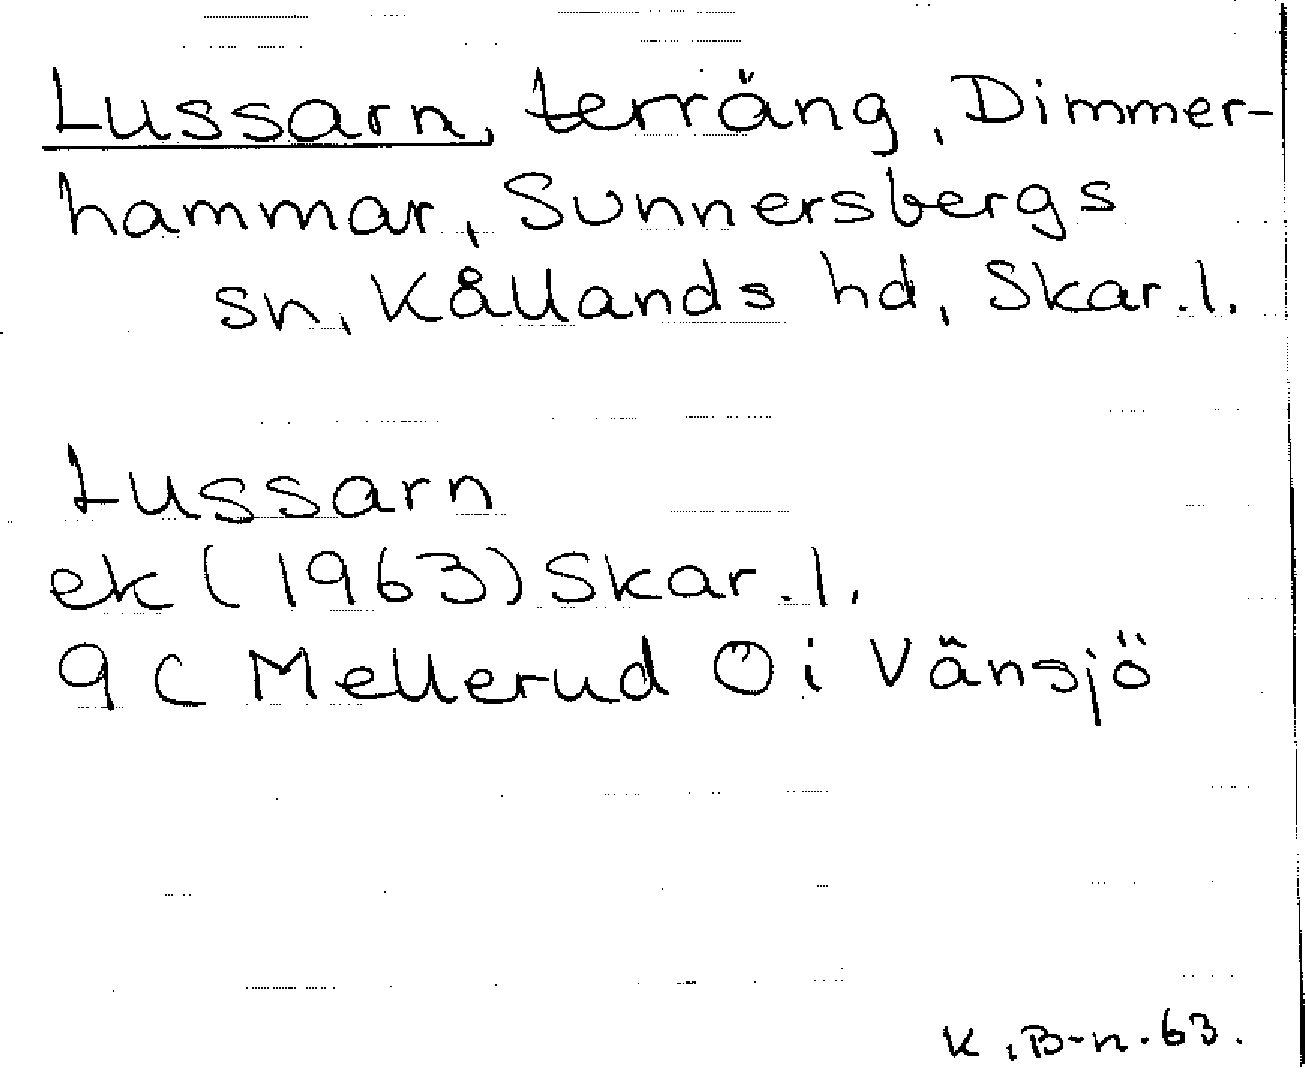 Lussarn, terräng, Dimmer-
hammar, Sunnersbergs
sn, Kållands hd, Skar.l.
Lussarn
ek (1963) Skar.l.
9C Mellerud Ö i Vänsjö
K.B-n.63.